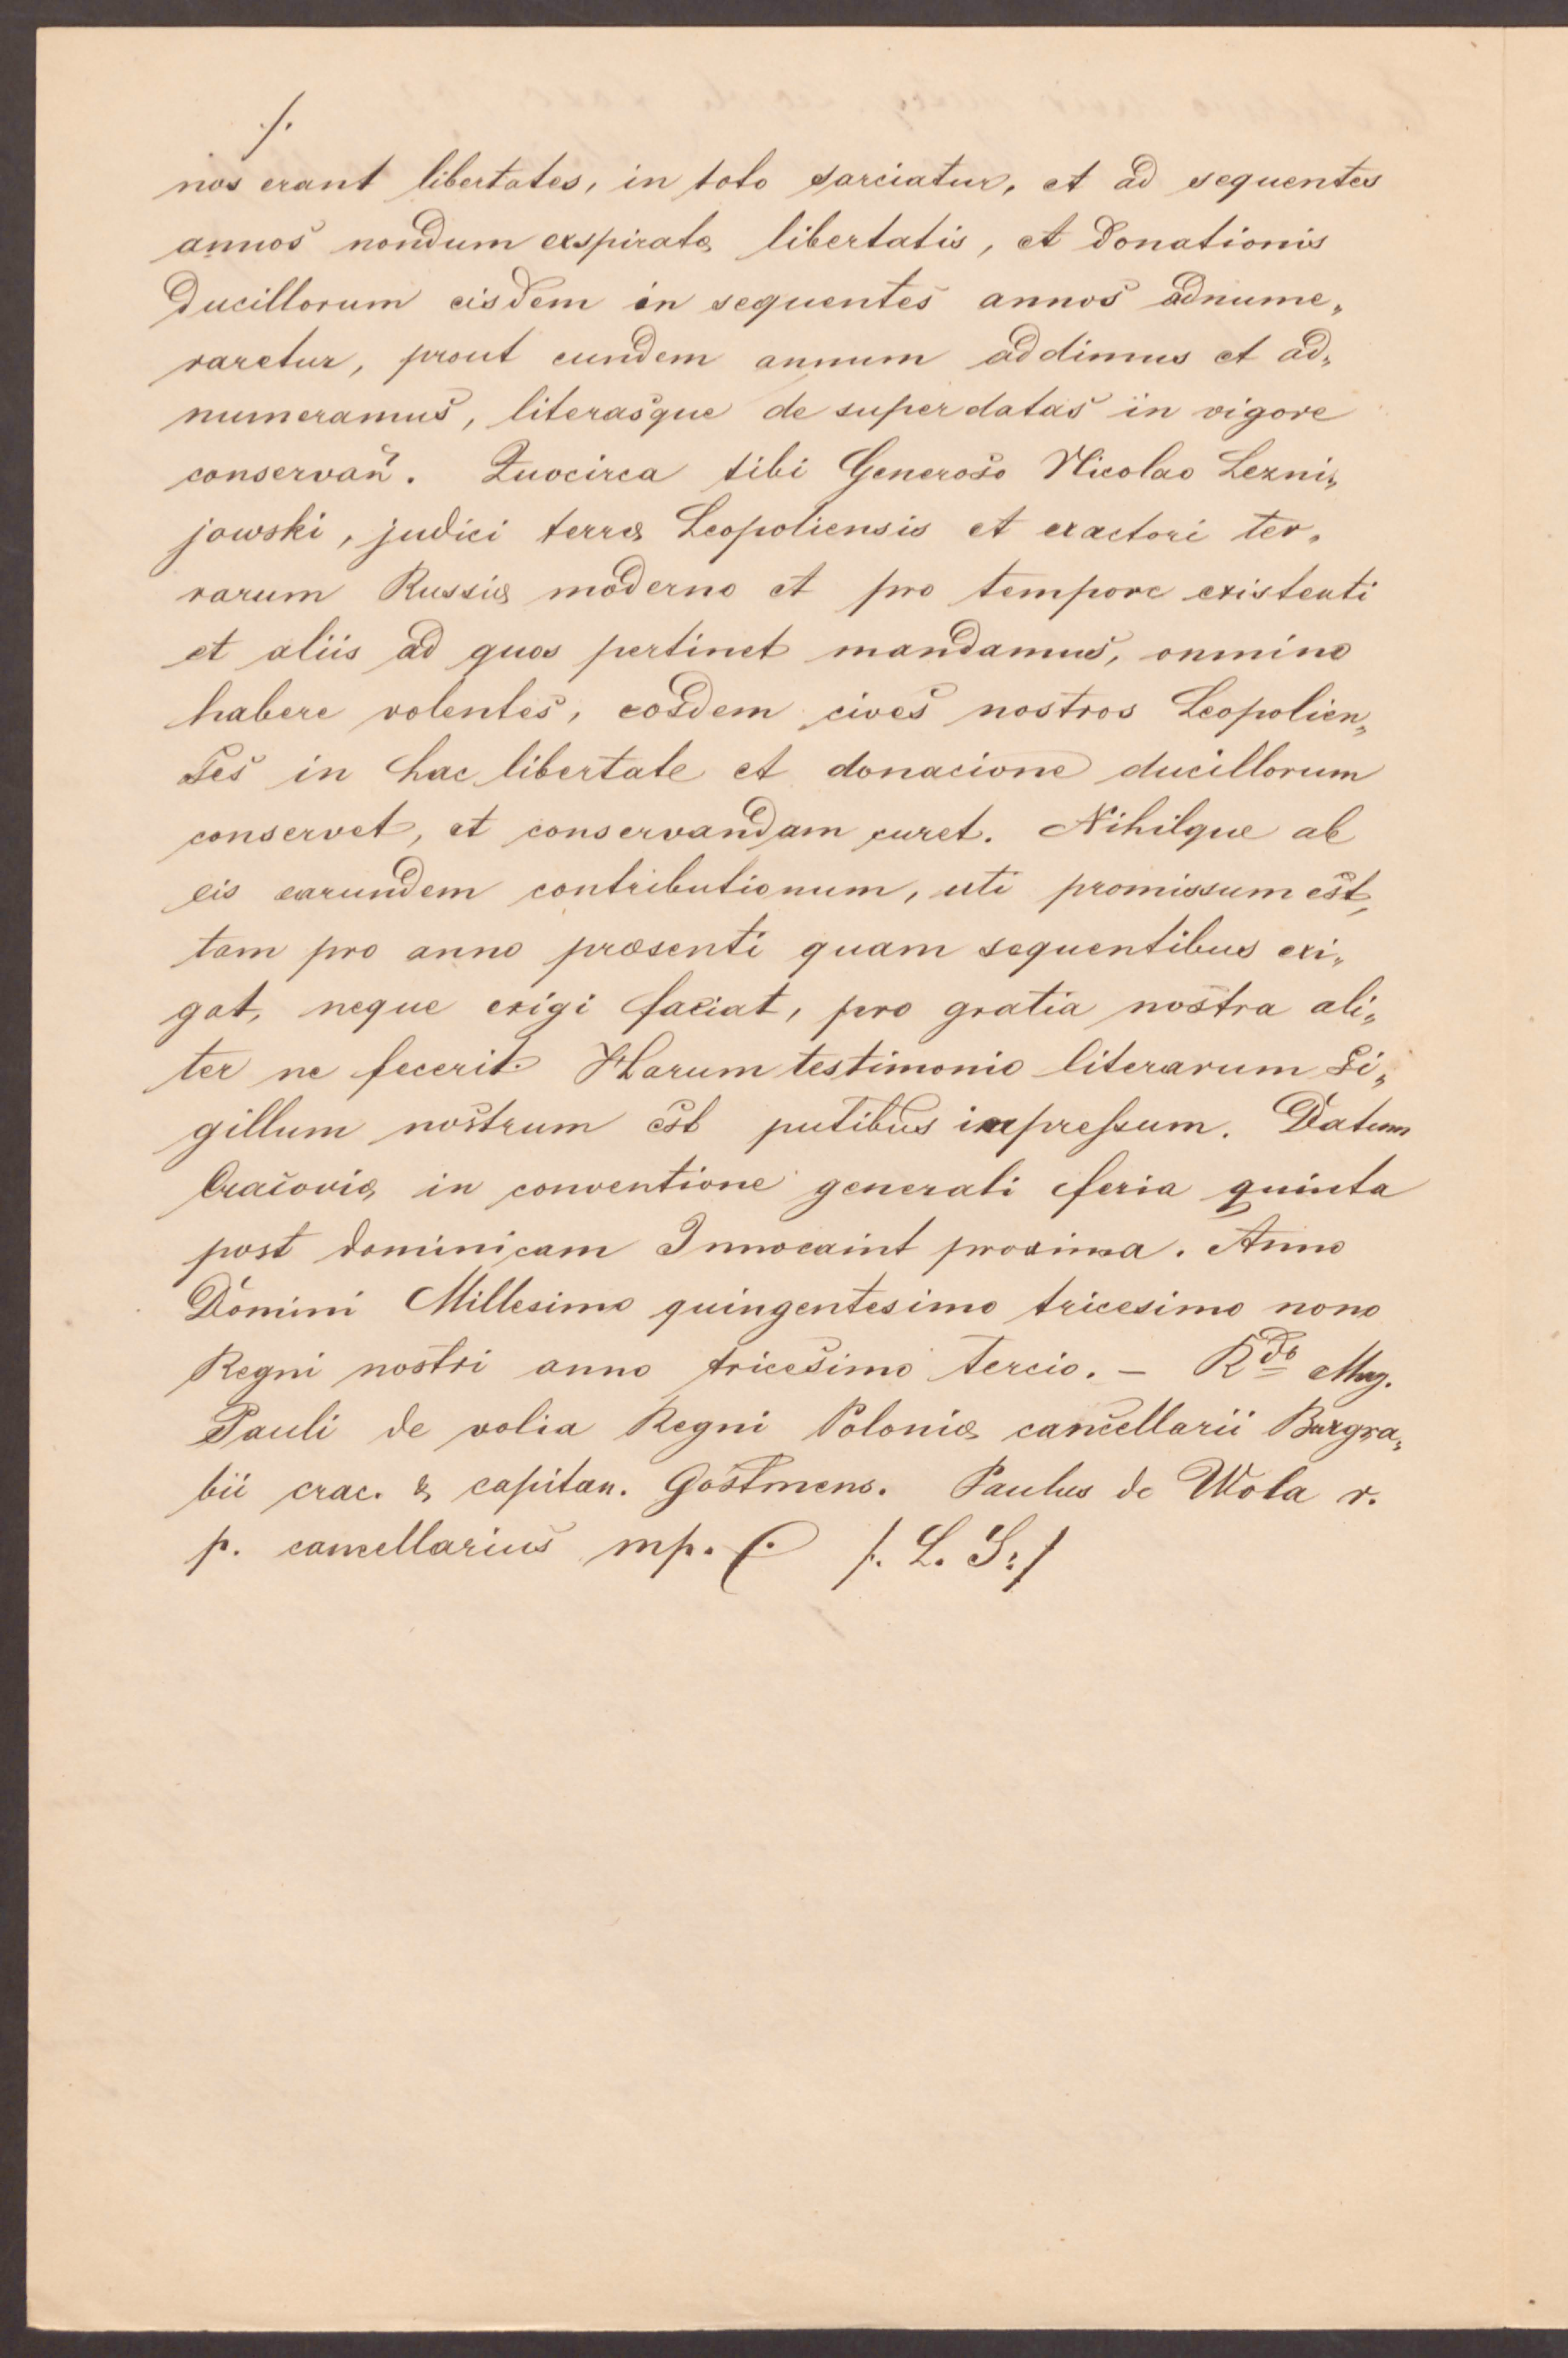 ./.
nos erant libertates, in toto sarciatur, et ad sequentes
annos nondum exspiratæ libertatis, et donationis
Ducillorum eisdem in sequentes annos adnume„
raretur, prout eundem annum addimus et ad„
numeramus, literasque de super datas in vigore
conservan̄. Quocirca tibi Generoso Nicolao Lezni„
jowski, judici terræ Leopoliensis et exactori ter„
rarum Russiæ moderno et pro tempore existenti
et aliis ad quos pertinet mandamus, omnino
habere volentes, eosdem cives nostros Leopolien„
ses in hac libertate et donacione ducillorum
conservet, et conservandam curet. Nihilque ab
eis earundem contributionum, uti promissum est,
tam pro anno præsenti quam sequentibus exi„
gat, neque exigi faciat, pro gratia nostra ali„
ter ne fecerit. Harum testimonio literarum Si„
gillum nostrum est putibus impressum. Datum
Cracoviæ in conventione generali feria quinta
post dominicam Innocaint proxima. Anno
Domini Millesimo quingentesimo tricesimo nono
Regni nostri anno tricesimo tercio. – Rdo Mag.
Pauli de volia Regni Poloniæ cancellarii Burgra„
bii crac. & capitan. Gostmens. Paulus de Wola r.
p. cancellarius mp. /. L. S: /